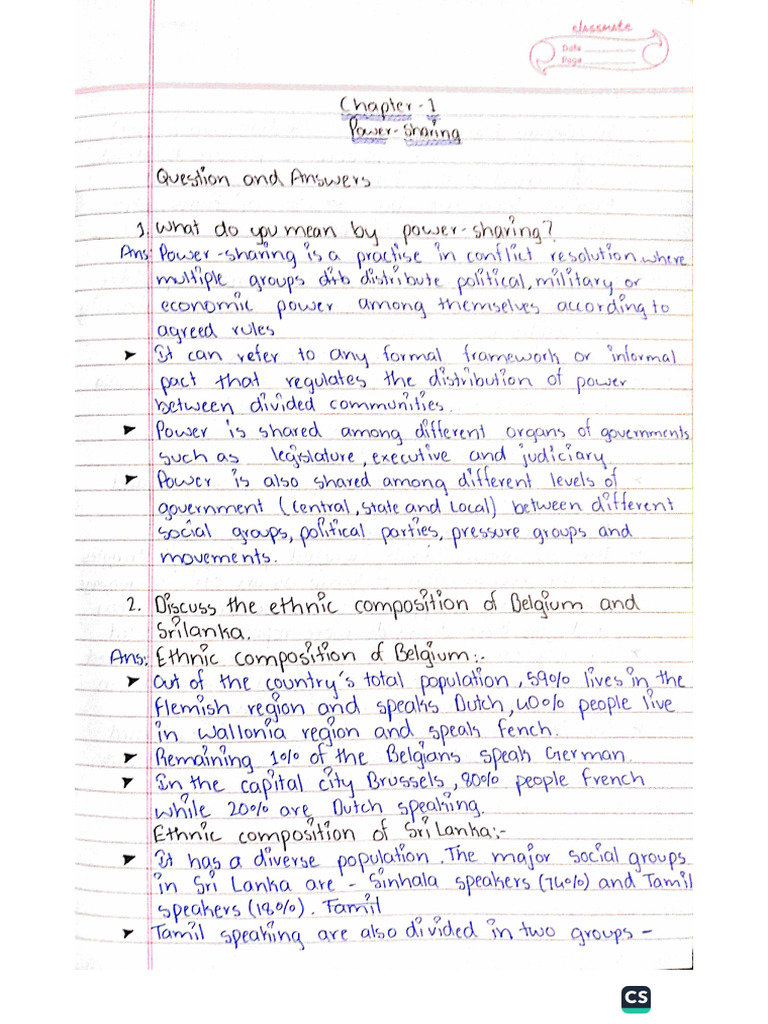 classmate
Date
Page
Chapter-1
Power-Sharing
Question and Answers
1. What do you mean by power-sharing?
Ans: Power-sharing is a practise in conflict resolution where
multiple groups distribute political, military or
economic power among themselves according to
agreed rules
➤ It can refer to any formal framework or informal
pact that regulates the distribution of power
between divided communities.
➤ Power is shared among different organs of governments
such as legislature, executive and judiciary
➤ Power is also shared among different levels of
government (Central, State and Local) between different
social groups, political parties, pressure groups and
movements.
2. Discuss the ethnic composition of Belgium and
Srilanka.
Ans: Ethnic composition of Belgium:-
➤ Out of the country's total population, 59% lives in the
Flemish region and speaks Dutch, 40% people live
in Wallonia region and speak fench.
➤ Remaining 1% of the Belgians speak German.
➤ In the capital city Brussels, 80% people French
while 20% are Dutch speaking.
Ethnic composition of Sri Lanka:-
➤ It has a diverse population. The major social groups
in Sri Lanka are - Sinhala speakers (74%) and Tamil
speakers (18%). Tamil
➤ Tamil speaking are also divided in two groups -
CS